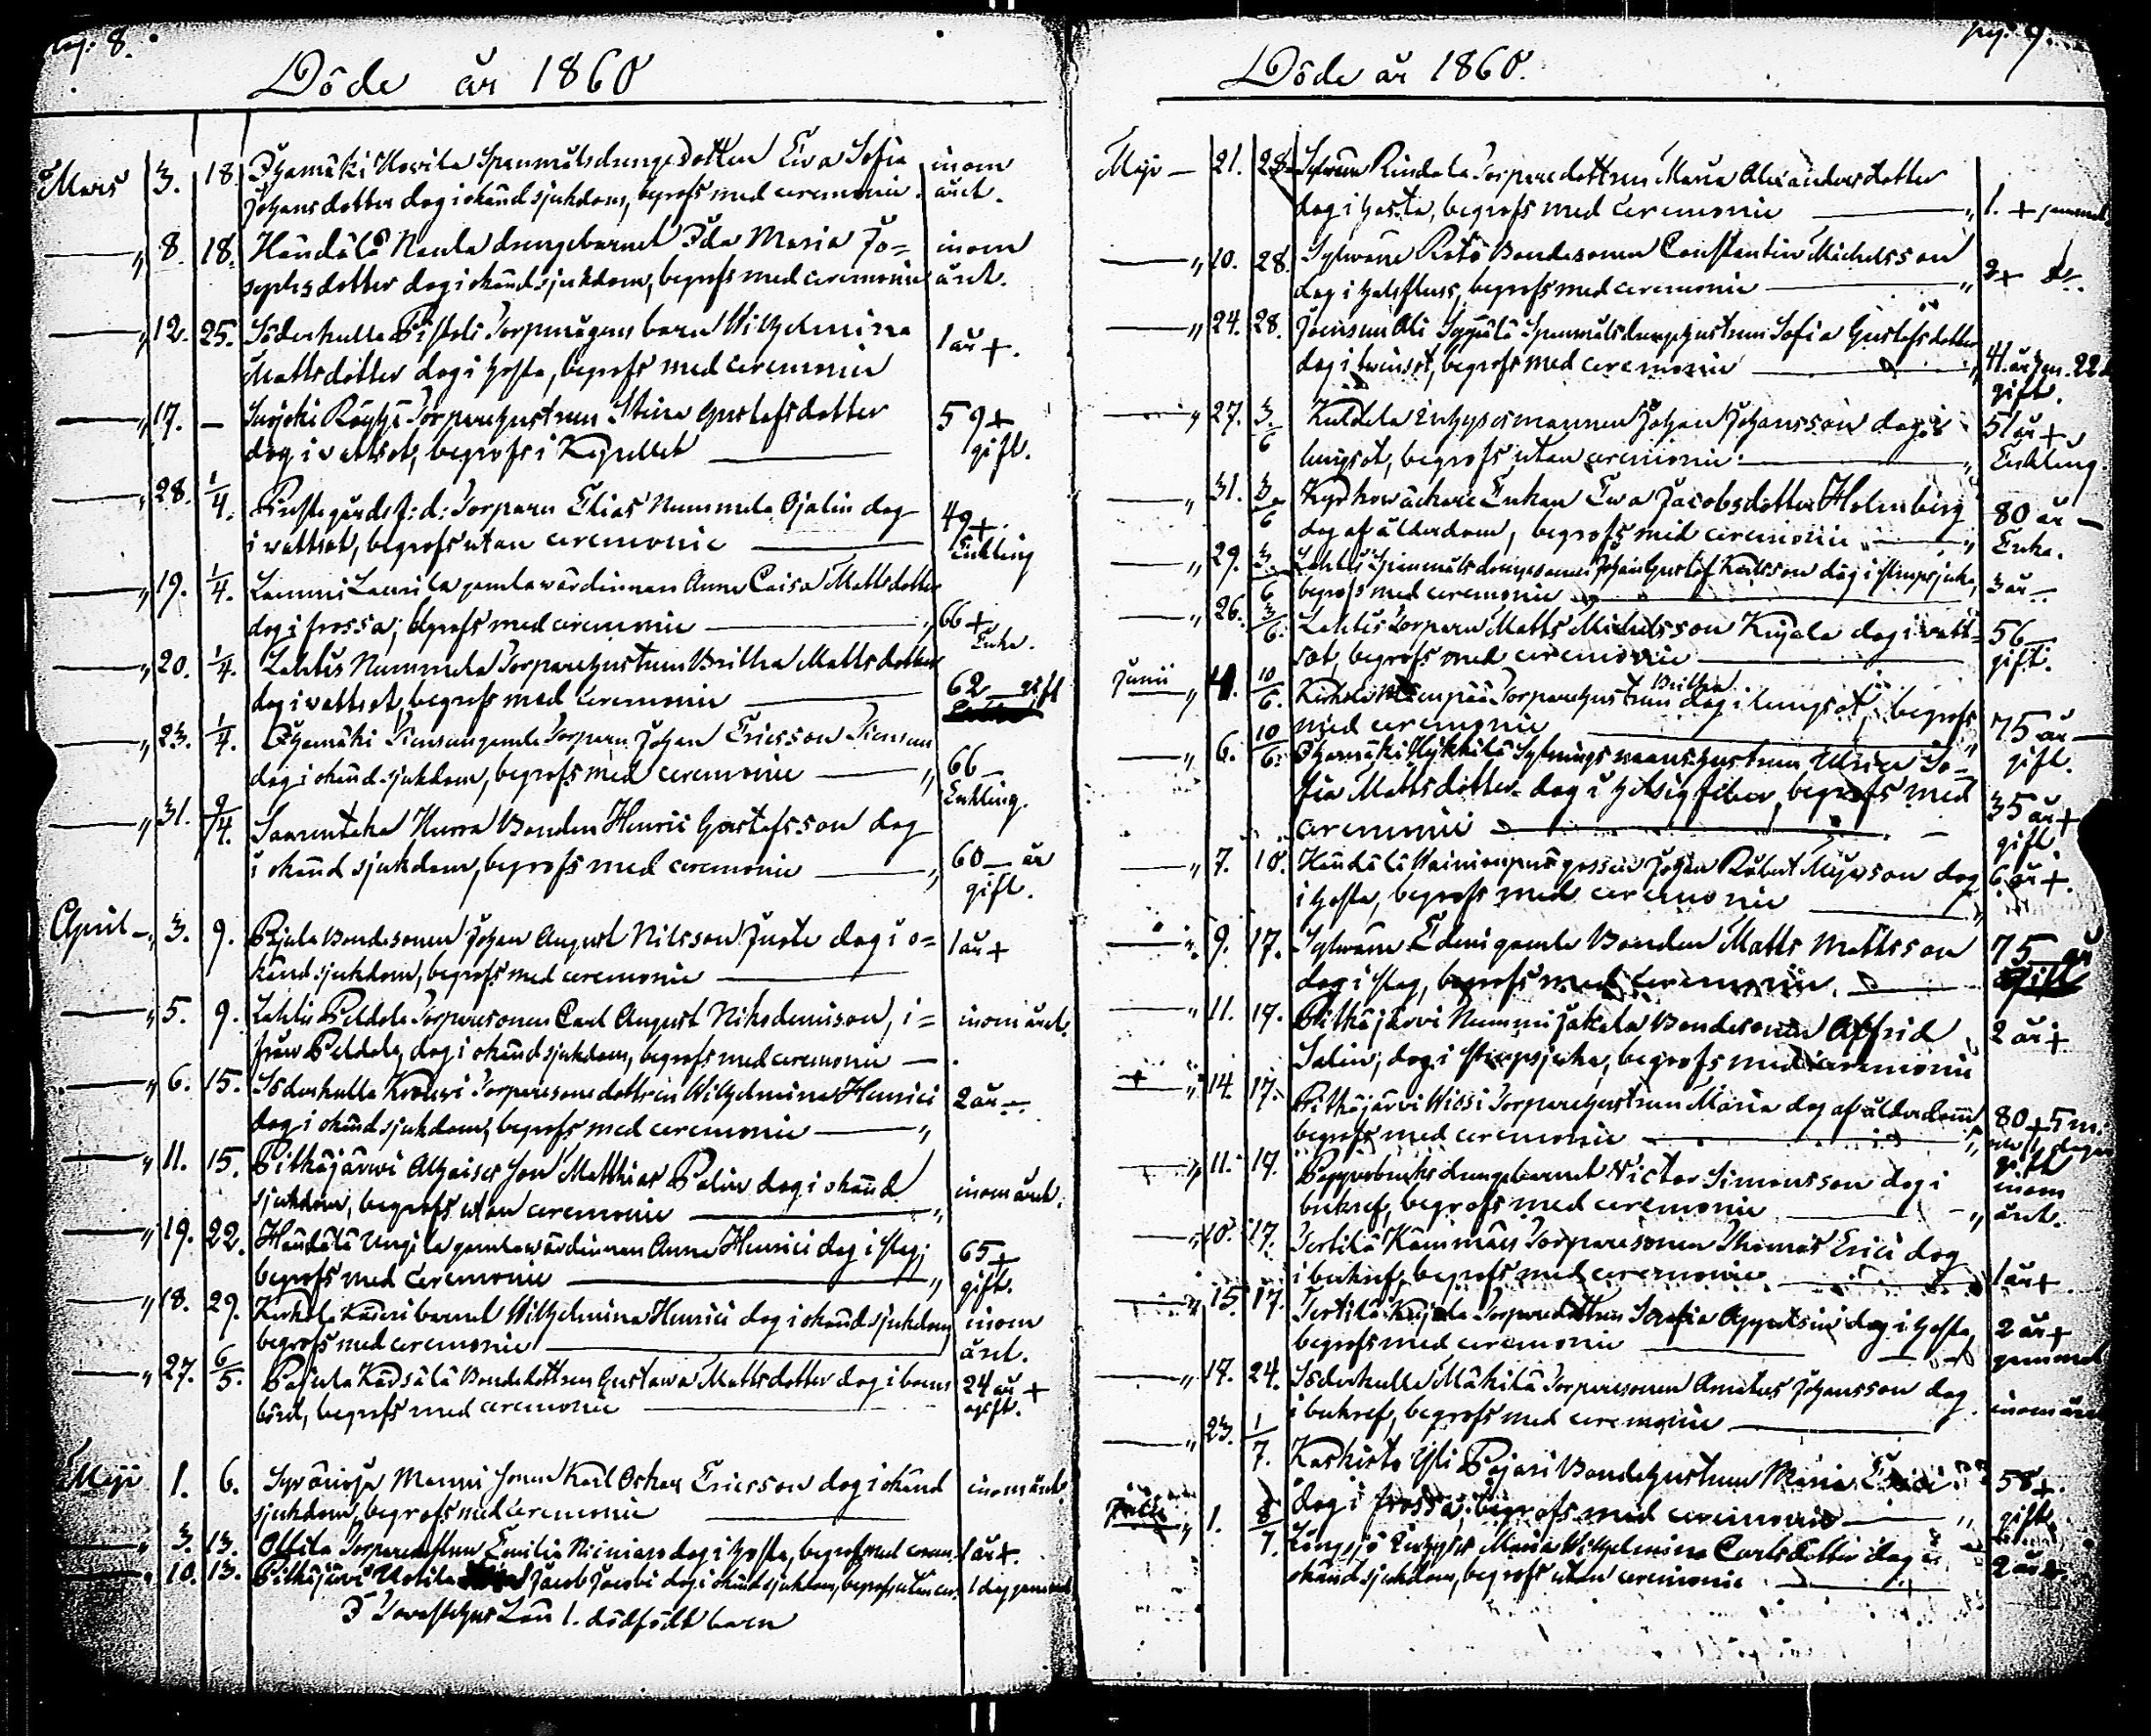 pag: 8.
Döde år 1860
Mars 3. 18. Ojamäki Spanmålsdrängedottren Eva Sofia inom
Johansdotter dog i okänd sjukdom, begrofs med ceremonie. året.
" 8. 18. Haudälä Naula drängebarnet Ida Maria Jo= inom
sephsdotter dog i okänd sjukdom, begrofs med ceremonie året.
" 12. 25. Söderkulla Torpmågens barn Wilhelmina 1 år +.
Mattsdotter dog i hosta, begrofs med ceremonie
" 17. — Torparehustrun Stina Gustafsdotter 59 +
dog i vattsot, begrofs i Kapellet gift.
" 28. 1/4. Prestgårds f:d: Torparn Elias Nummela Ojalin dog 49 +.
i vattsot, begrofs utan ceremonie Enkling
" 19. 1/4. Lammi Laurila gamla wärdinnan Anna Caisa Mattsdotter
dog i frossa, begrofs med ceremonie " 66 +
Enka.
" 20. 1/4. Lahtis Nummela Torparehustrun Britha Mattsdotter
dog i vattsot, begrofs med ceremonie 62 — gift
" 23. 1/4. Ojamäki gamla Torparn Johan Ericsson
dog i okänd sjukdom, begrofs med ceremonie " 66 —
Enkling.
" 31. 9/4. Saarentaka Bonden Henric Gustafsson dog
i okänd sjukdom, begrofs med ceremonie " 60 — år
gift.
April — " 3. 9. Pajula Bondesonen Johan August Nilsson Juote dog i o= 1 år +
känd sjukdom, begrofs med ceremonie
" 5. 9. Lahtis Peldola Torparesonen Carl August Nikodemisson, i= inom året.
från Peldola, dog i okänd sjukdom, begrofs med ceremonie —
" 6. 15. Söderkulla Torparesonedottren Wilhelmina Henrici 2 år —.
dog i okänd sjukdom, begrofs med ceremonie "
" 11. 15. Pitkäjärwi son Matthias Palin dog i okänd
sjukdom, begrofs utan ceremonie " inom året.
" 19. 22. Haudälä Ungila gamla wärdinnan Anna Henrici dog i slag, 65 +
begrofs med ceremonie " gift.
" 18. 29. Kerkola barnet Wilhelmina Henrici dog i okänd sjukdom inom
begrofs med ceremonie året.
" 27. 6/5. Pajula Bondedottren Gustawa Mattsdotter dog i barns 24 år +
börd, begrofs med ceremonie ogift.
Maji 1. 6. Manni sonen Karl Oskar Ericsson dog i okänd inom året.
sjukdom, begrofs med ceremonie
" 3. 13. Ollila Torparedottren Emilia dog i hosta, begrofs med cerem. 1 år +.
" 10. 13. Pitkäjärvi Uotila Jacob Jacobi dog i okänd sjukdom, begrofs utan cer. 1 dag gammal
I Tavastehus Län 1. dödfödt barn
pag. 9.
Döde år 1860.
Maji — 21. 28. Sylwäne Rindala Torparedottren Maria Alexandersdotter
dog i hosta, begrofs med ceremonie " 1. + gammal
" 20. 28. Sylwäne Bondesonen Constantin Michelsson
dog i halsfluss, begrofs med ceremonie " 2 +
" 24. 28. Joensuu Ali Spanmålsdrängehustrun Sofia Gustafsdotter
dog i begrofs med ceremonie " 41. år 7 m. 22 d
gift.
" 27. 3/6 Kuldela Inhysesmannen Johan Johansson dog i 51 år +
lungsot, begrofs utan ceremonie " Enkling.
" 31. 3/6 Kyrkowäktare Enkan Ewa Jacobsdotter Holmberg 80 år —
dog af ålderdom, begrofs med ceremonie " Enka.
" 29. 3/6 Lahtis Spanmålsdrängesonen Johan Gustaf Karlsson dog i strupsjuka, 3 år —
begrofs med ceremonie
" 26. 3/6. Lahtis Torparn Matts Michelsson Kujala dog i vatt= 56 —
sot, begrofs med ceremonie gift.
Junii " 4. 10/6. Kerkola Torparehustrun Britha dog i lungsot, begrofs
med ceremonie 75 år —
gift.
" 6. 10/6. Ojamäki Hykkilä Sytningsmanshustrun Ulrica So=
fia Mattsdotter dog i hetsig feber, begrofs med
ceremonie 35 år +
gift
" 7. 10. Haudälä Wainionpää gossen Johan Robert Myrson dog 6. år +.
i hosta, begrofs med ceremonie "
" 9. 17. Sylwäne Edeni gamla Bonden Matts Mattsson 75 — år
dog i slag, begrofs med ceremonie.
" 11. 17. Pitkäjärvi Nummi Jakala Bondesonen Alfrid 2 år +
Salin, dog i strupsjuka, begrofs med ceremonie
+ " 14. 17. Pitkäjärvi Wissi Torparehustrun Maria dog af ålderdom, 80 + 5 m.
begrofs med ceremonie " gift
" 11. 17. drängebarnet Victor Simonsson dog i inom
bukref, begrofs med ceremonie " året.
" 10. 17. Tertilä Torparesonen Thomas Erici dog
i bukref, begrofs med ceremonie 1 år +
" 15. 17. Tertilä Kujala Torparedottren Serafia dog i hosta, 2 år +
begrofs med ceremonie gammal
" 17. 24. Söderkulla Mäkilä Torparesonen Amatus Johansson dog inom året
i bukref, begrofs med ceremonie
" 23. 1/7. Kaskisto Yli Pajari Bondehustrun Maria Erici 58 +.
dog i frossa, begrofs med ceremonie " gift.
Julii " 1. 8/7. Långsjö Inhyses Maria Wilhelmina Carlsdotter dog i
okänd sjukdom, begrofs utan ceremonie 2 år +.